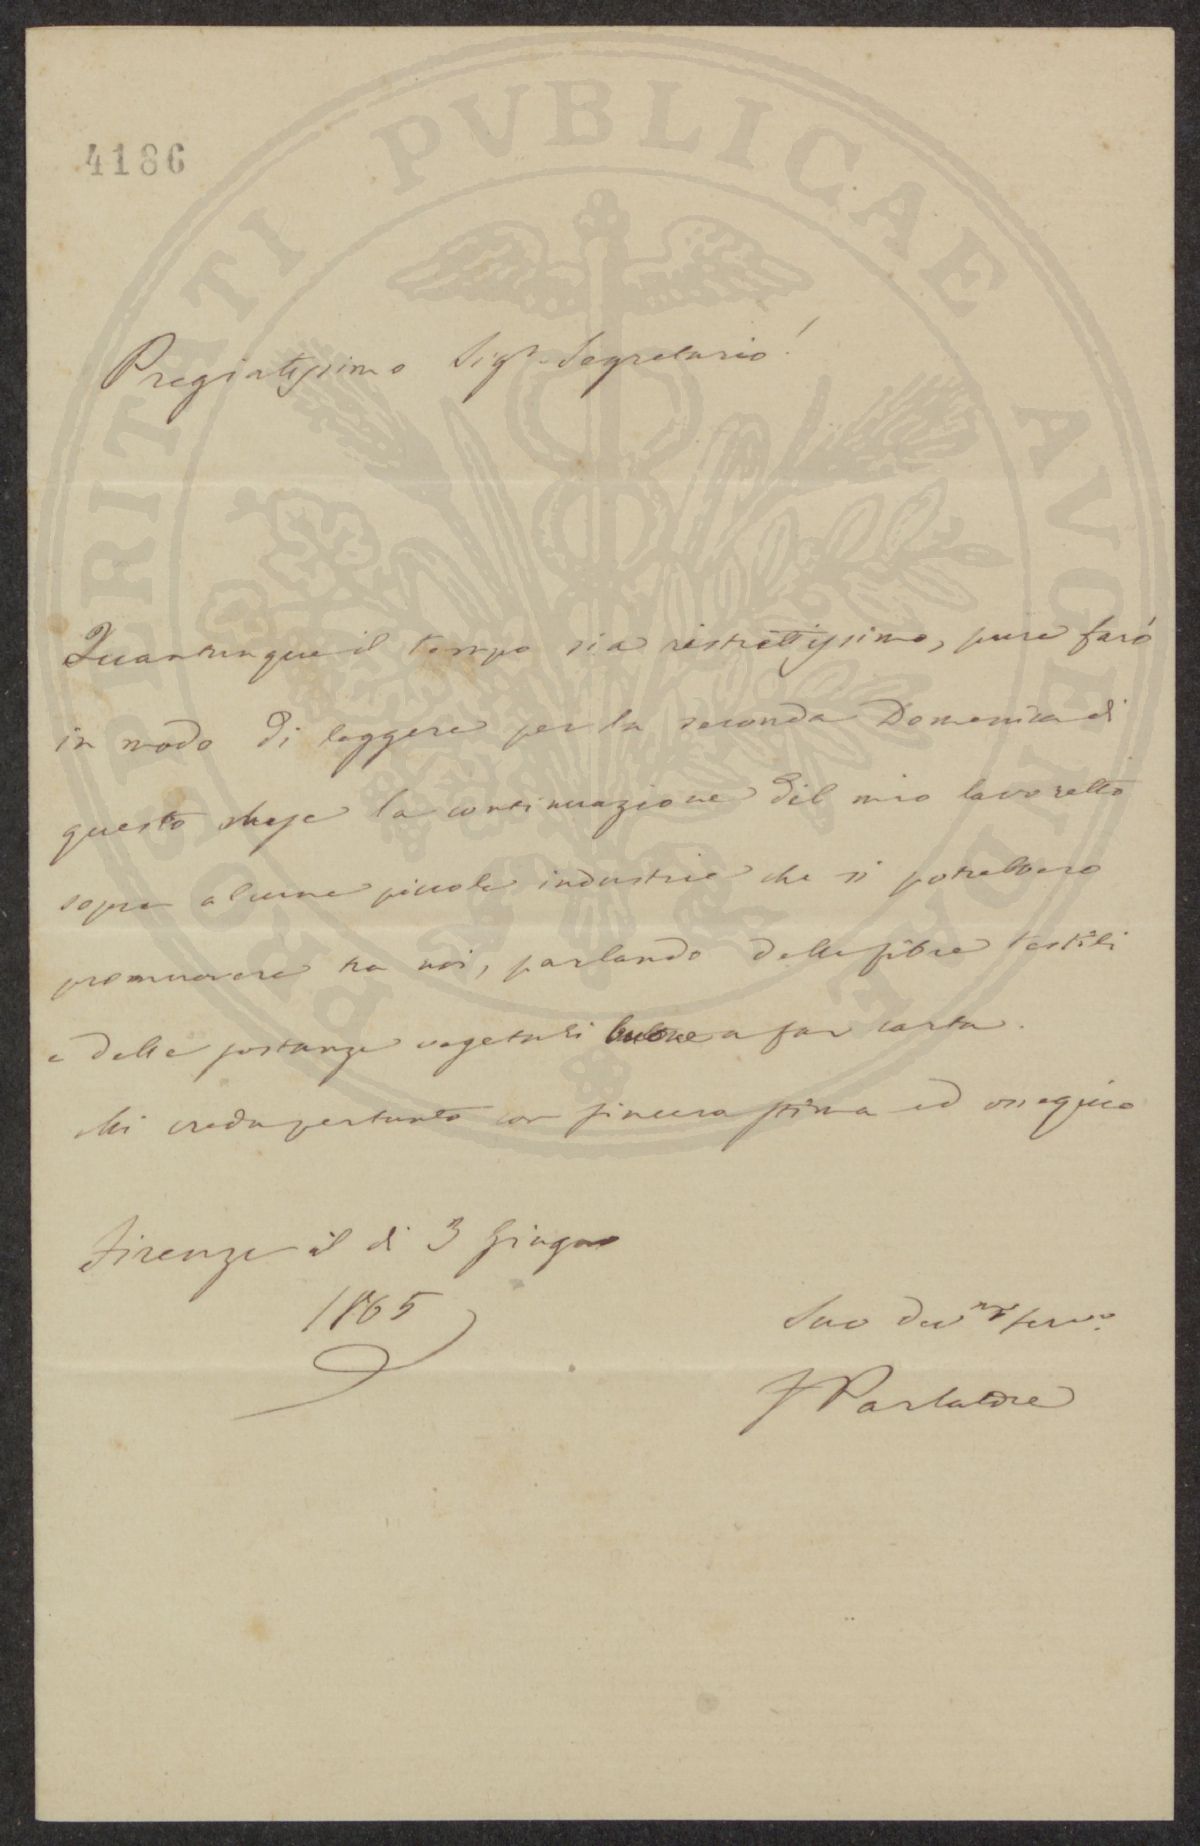 4186
PROSPERITATI PVBLICAE AVGENDAE
Pregiatissimo Sigr. Segretario!
Quantunque il tempo sia ristrettissimo, pure farò
in modo di leggere per la seconda Domenica di
questo mese la continuazione del mio lavoretto
sopra alcune piccole industrie che si potrebbero
promuovere tra noi, parlando delle fibre testili
e delle sostanze vegetali buone a far carta.
Mi creda pertanto con sincera stima ed ossequio
Firenze il dì 3 Giugno
1865
Suo devmo servo.
F Parlatore